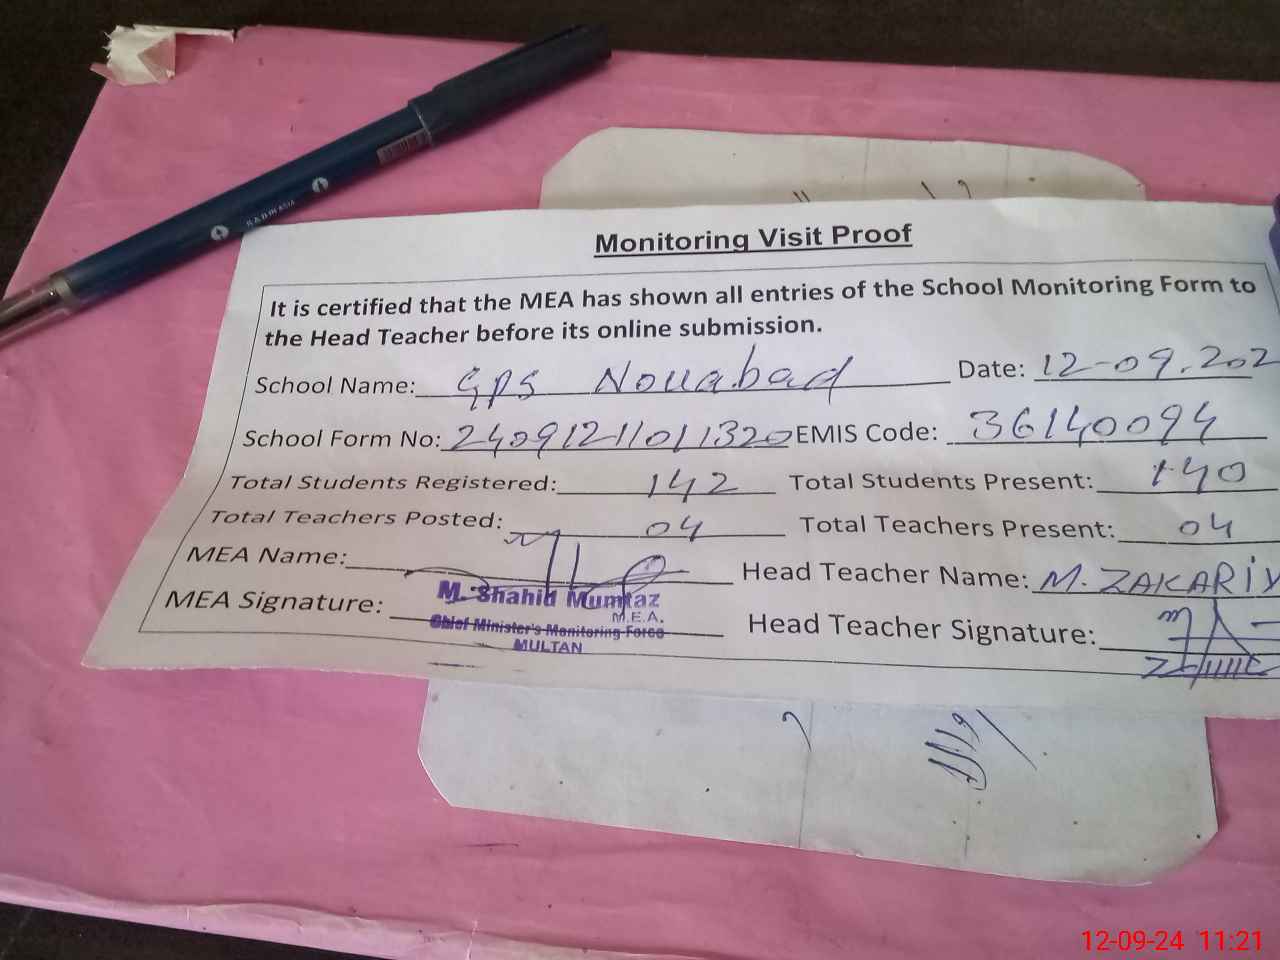 Monitoring Visit Proof
It is certified that the MEA has shown all entries of the School Monitoring Form to
the Head Teacher before its online submission.
School Name: GPS Nouabad Date: 12-09.202
School Form No: 24091211011320 EMIS Code: 36140094
Total Students Registered: 142 Total Students Present: 140
Total Teachers Posted: 04 Total Teachers Present: 04
MEA Name: Head Teacher Name: M. ZAKARIY
M. Shahid Mumtaz
M.E.A.
MEA Signature: Head Teacher Signature:
Chief Minister's Monitoring Force
MULTAN
12-09-24 11:21